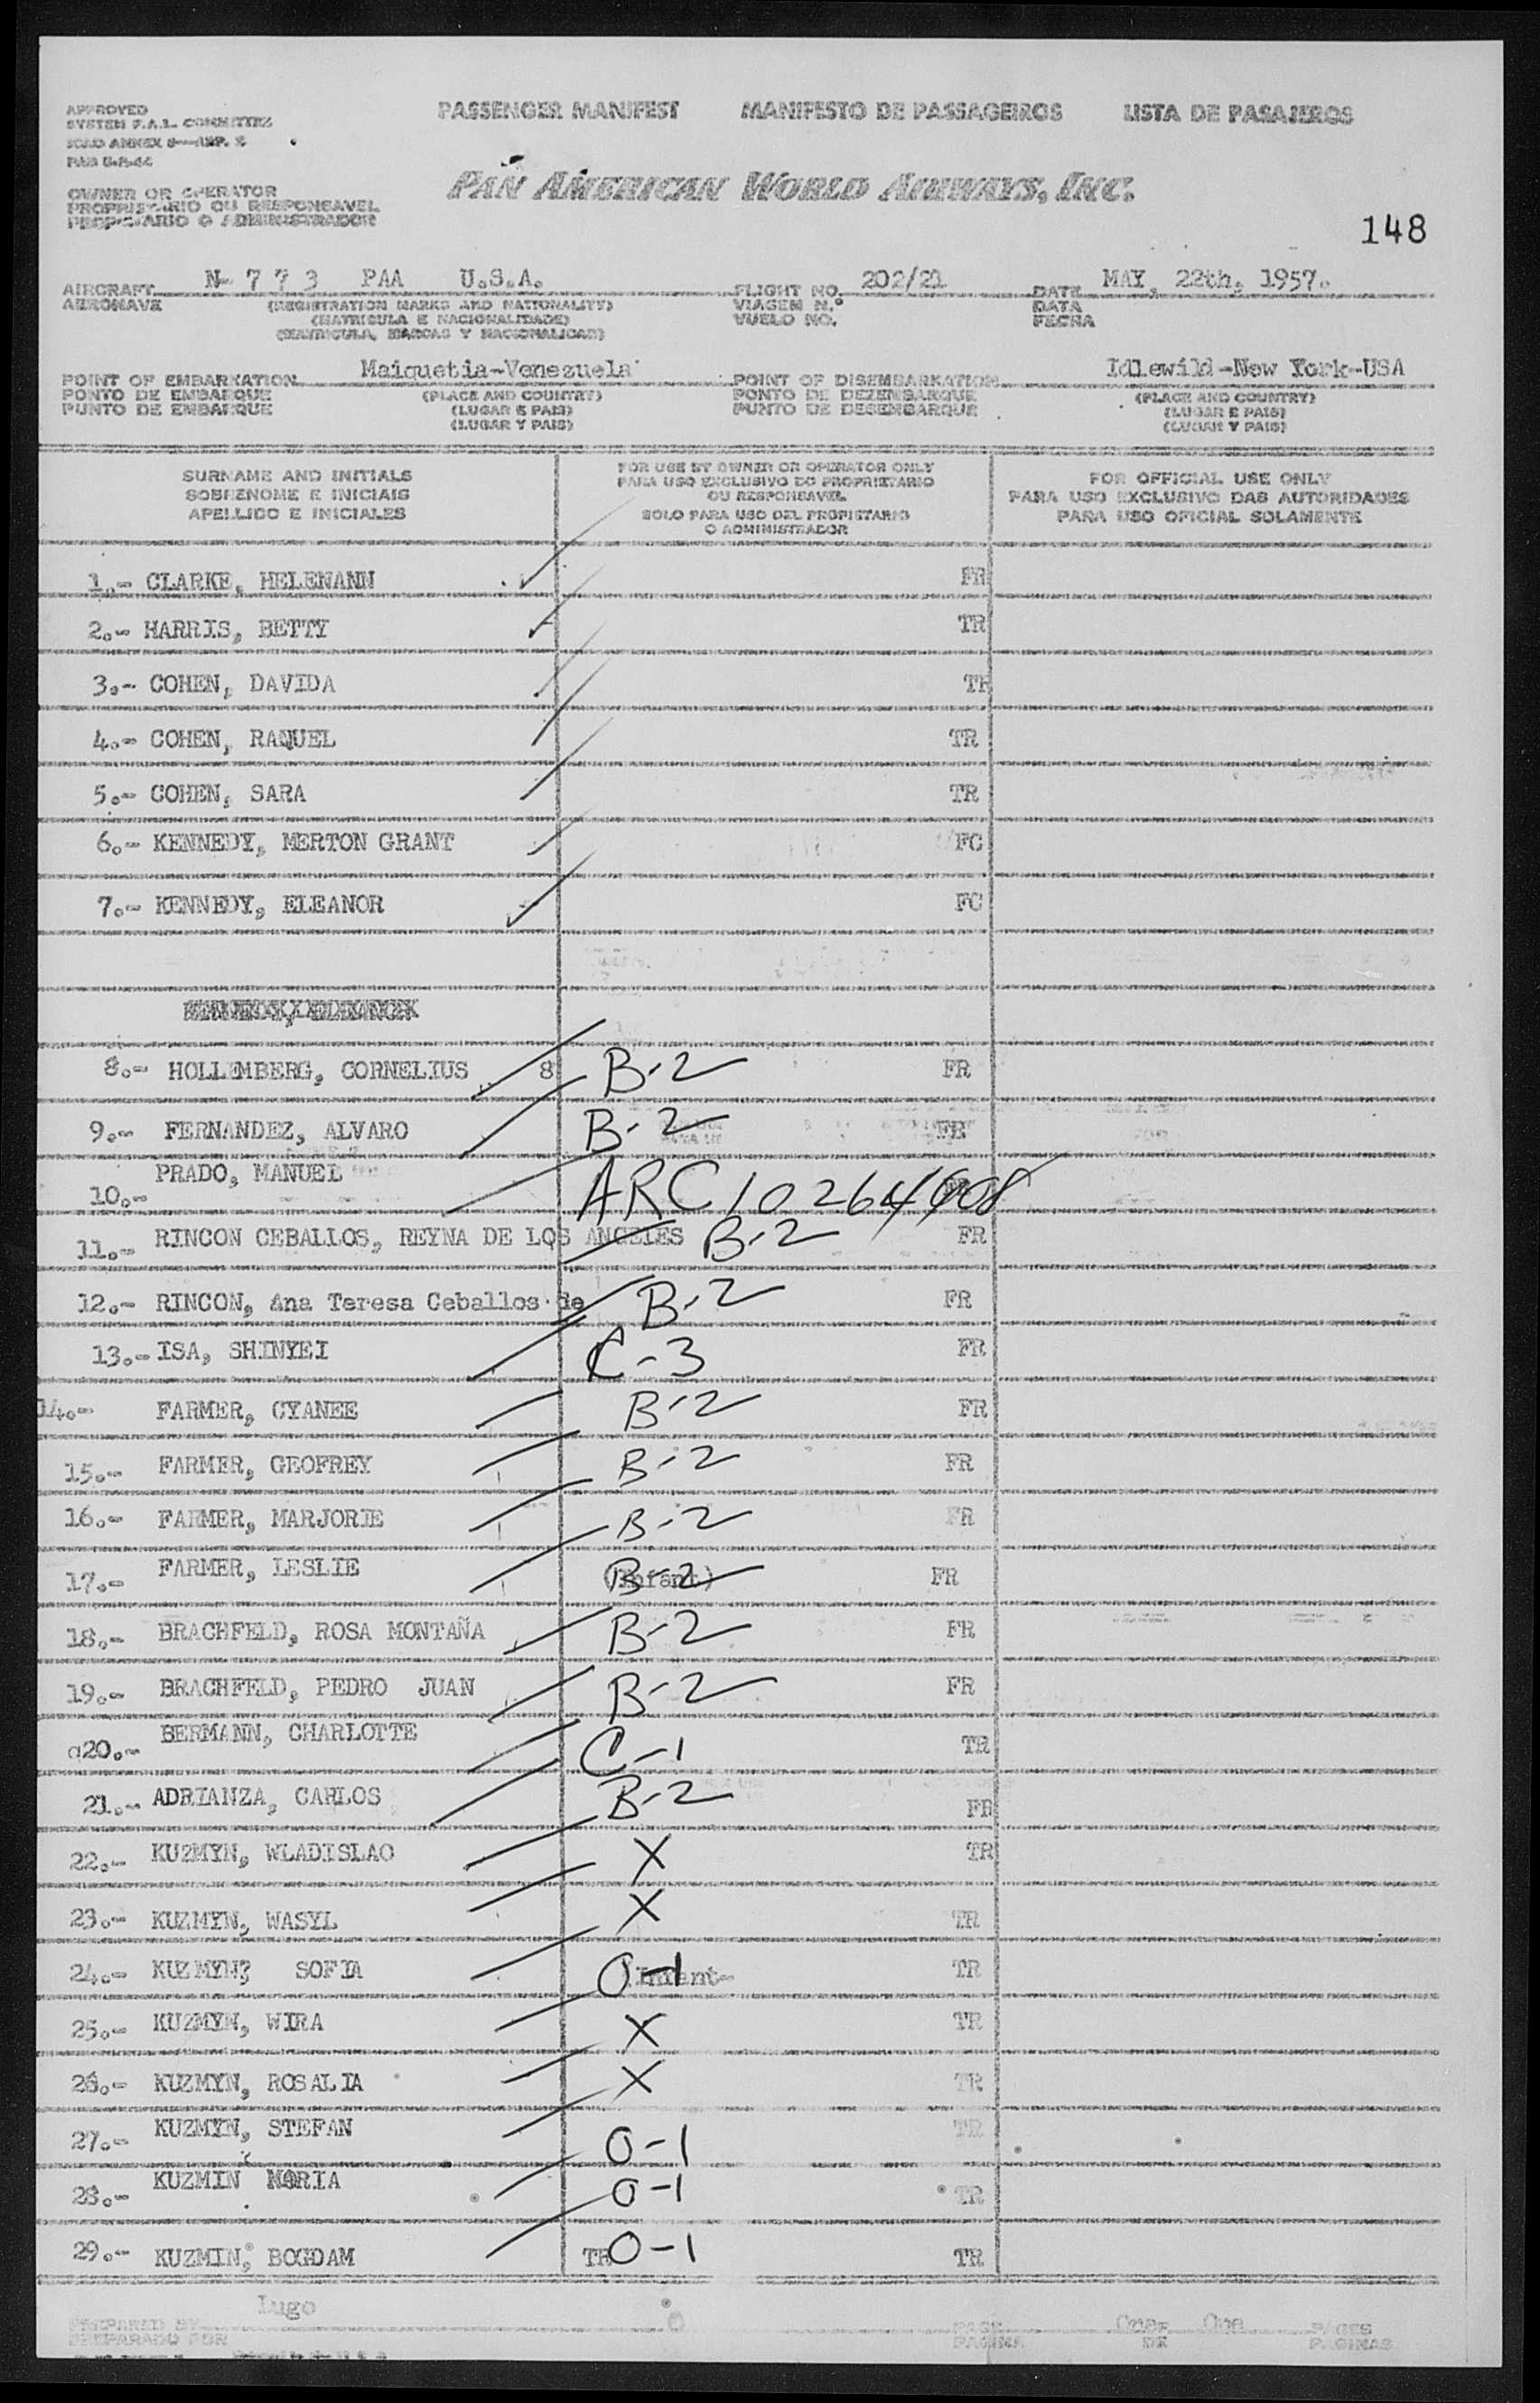 APPROVED
SYSTEM F.A.L. COMMITTEE
ICAO ANNEX 9—APP. 2
PASSENGER MANIFEST MANIFESTO DE PASSAGEIROS LISTA DE PASAJEROS
OWNER OR OPERATOR
PROPRIETARIO OU RESPONSAVEL
PROPIETARIO O ADMINISTRADOR
PAN AMERICAN WORLD AIRWAYS, INC.
148
AIRCRAFT N- 7 7 3 PAA U.S.A. FLIGHT NO. 202/21 DATE MAY, 22th, 1957.
AERONAVE (REGISTRATION MARKS AND NATIONALITY) VIAGEM N.º DATA
(MATRICULA E NACIONALIDADE) VUELO NO. FECHA
(MATRICULA, MARCAS Y NACIONALIDAD)
POINT OF EMBARKATION Maiquetia-Venezuela POINT OF DISEMBARKATION Idlewild-New York-USA
PONTO DE EMBARQUE (PLACE AND COUNTRY) PONTO DE DEZENBARQUE (PLACE AND COUNTRY)
PUNTO DE EMBARQUE (LUGAR E PAIS) PUNTO DE DESENBARQUE (LUGAR E PAIS)
(LUGAR Y PAIS) (LUGAR Y PAIS)
SURNAME AND INITIALS
SOBRENOME E INICIAIS
APELLIDO E INICIALES
FOR USE BY OWNER OR OPERATOR ONLY
PARA USO EXCLUSIVO DO PROPRIETARIO
OU RESPONSAVEL
SOLO PARA USO DEL PROPIETARIO
O ADMINISTRADOR
FOR OFFICIAL USE ONLY
PARA USO EXCLUSIVO DAS AUTORIDADES
PARA USO OFICIAL SOLAMENTE
1.- CLARKE, HELENANN FR
2.- HARRIS, BETTY TR
3.- COHEN, DAVIDA TR
4.- COHEN, RAQUEL TR
5.- COHEN, SARA TR
6.- KENNEDY, MERTON GRANT FC
7.- KENNEDY, ELEANOR FC
8.- HOLLEMBERG, CORNELIUS 8 B-2 FR
9.- FERNANDEZ, ALVARO B-2 FR
10.- PRADO, MANUEL ARC 10264908
11.- RINCON CEBALLOS, REYNA DE LOS ANGELES B-2 FR
12.- RINCON, Ana Teresa Ceballos de B-2 FR
13.- ISA, SHINYEI C-3 FR
14.- FARMER, CYANEE B-2 FR
15.- FARMER, GEOFREY B-2 FR
16.- FARMER, MARJORIE B-2 FR
17.- FARMER, LESLIE (Infant) B-2 FR
18.- BRACHFELD, ROSA MONTAÑA B-2 FR
19.- BRACHFELD, PEDRO JUAN B-2 FR
20.- BERMANN, CHARLOTTE C-1 TR
21.- ADRIANZA, CARLOS B-2 FR
22.- KUZMYN, WLADISLAO X TR
23.- KUZMYN, WASYL X TR
24.- KUZMYN, SOFIA (Infant- O-1 TR
25.- KUZMYN, WIRA X TR
26.- KUZMYN, ROSALIA X TR
27.- KUZMYN, STEFAN O-1 TR
28.- KUZMIN MARIA O-1 TR
29.- KUZMIN, BOGDAM TR O-1 TR
PREPARED BY Lugo PAGE One One PAGES
PREPARADO POR PAGINA DE PAGINAS